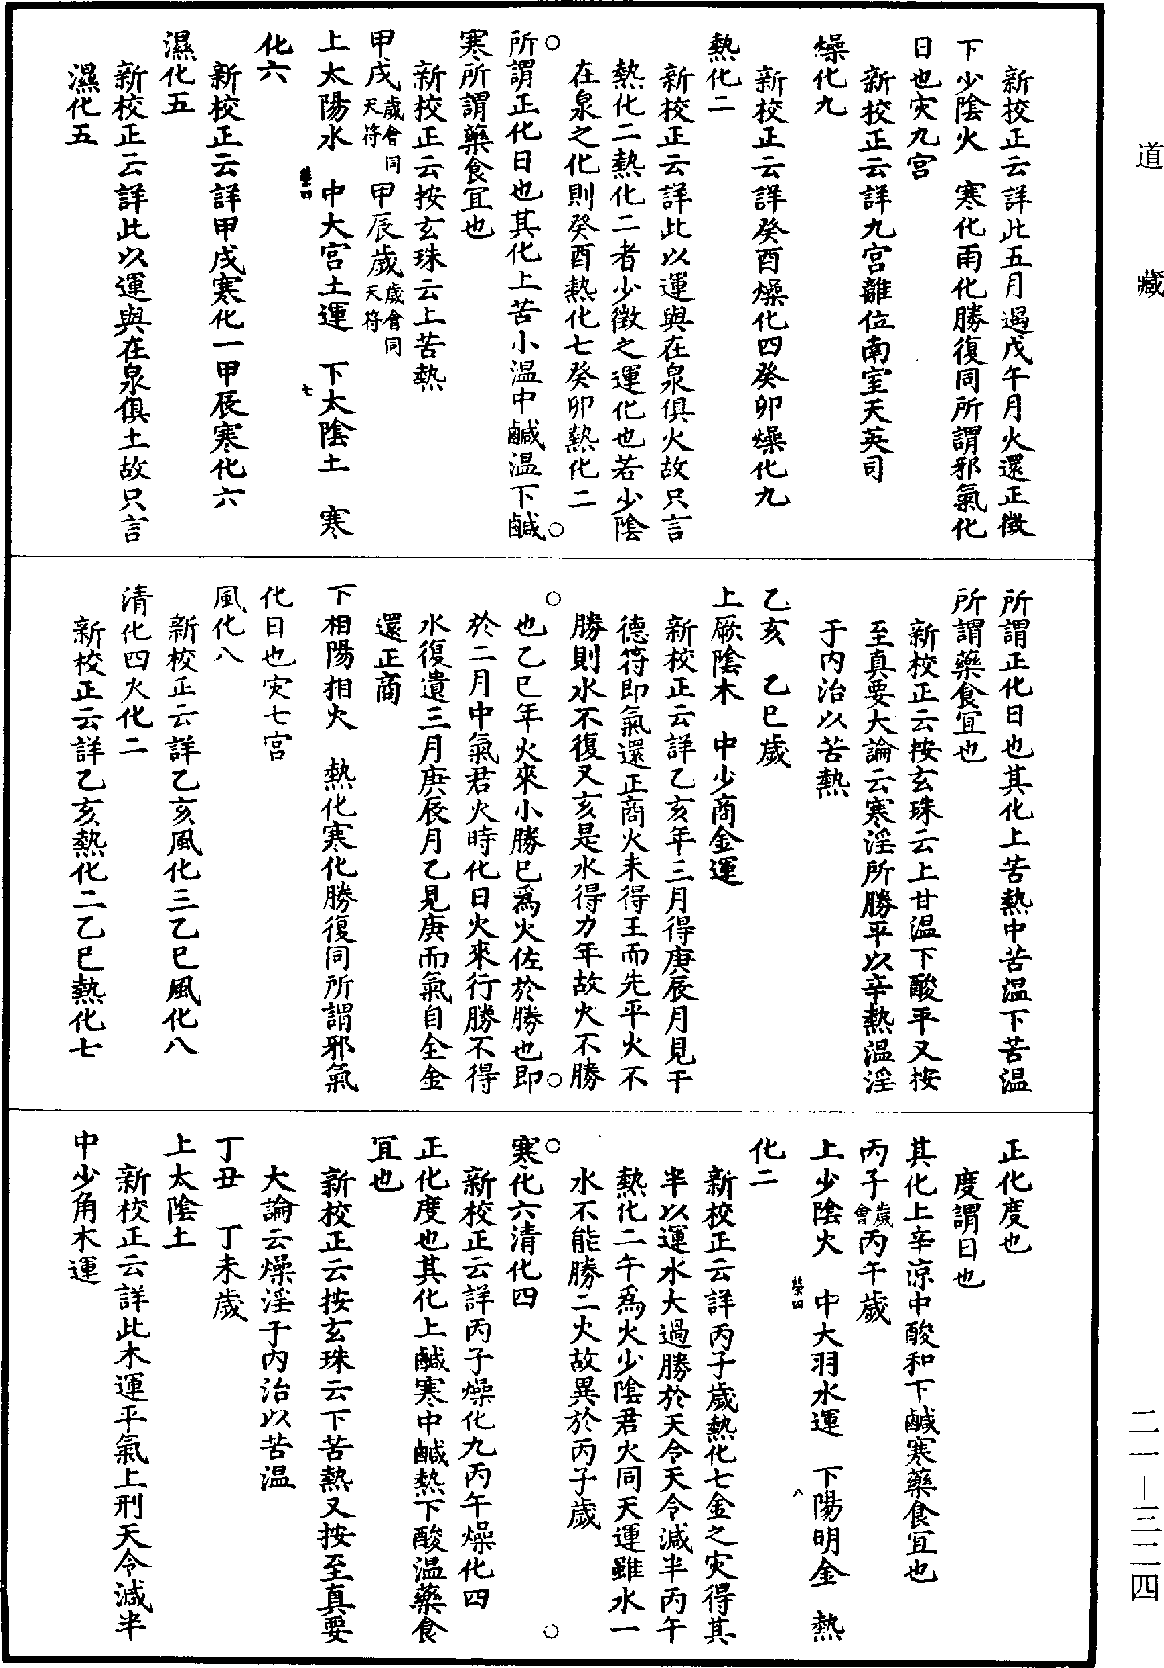 道藏
新校正云詳此五月過戊午月火還正徵
下少陰火　寒化雨化勝復同所謂邪氣化
日也灾九宮
新校正云詳九宮離位南室天英司
燥化九
新校正云詳癸酉燥化四癸卯燥化九
熱化二
新校正云詳此以運與在泉俱火故只言
熱化二熱化二者少徵之運化也若少陰
在泉之化則癸酉熱化七癸卯熱化二
所謂正化日也其化上苦小温中鹹温下鹹
寒所謂藥食宜也
新校正云按玄珠云上苦熱
甲戌歲會同天符甲辰歲歲會同天符
上太陽水　中大宮土運　下太陰土　寒
化六
新校正云詳甲戌寒化一甲辰寒化六
濕化五
新校正云詳此以運與在泉俱土故只言
濕化五
所謂正化日也其化上苦熱中苦温下苦温
所謂藥食宜也
新校正云按玄珠云上甘温下酸平又按
至真要大論云寒淫所勝平以辛熱温淫
于内治以苦熱
乙亥　乙巳歲
上厥陰木　中少商金運
新校正云詳乙亥年三月得庚辰月見干
德符即氣還正商火未得王而先平火不
勝則水不復又亥是水得力年故火不勝
也乙巳年火來小勝巳爲火佐於勝也即
於二月中氣君火時化日火來行勝不得
水復遺三月庚辰月乙見庚而氣自全金
還正商
下相陽相火　熱化寒化勝復同所謂邪氣
化日也灾七宮
風化八
新校正云詳乙亥風化三乙巳風化八
清化四火化二
新校正云詳乙亥熱化二乙巳熱化七
正化度也
度謂日也
其化上辛凉中酸和下鹹寒藥食宜也
丙子歲會丙午歲
上少陰火　中大羽水運　下陽明金　熱
化二
新校正云詳丙子歲熱化七金之灾得其
半以運水大過勝於天令天令減半丙午
熱化二午爲火少陰君火同天運雖水一
水不能勝二火故異於丙子歲
寒化六清化四
新校正云詳丙子燥化九丙午燥化四
正化度也其化上鹹寒中鹹熱下酸温藥食
宜也
新校正云按玄珠云下苦熱又按至真要
大論云燥淫于内治以苦温
丁丑　丁未歲
上太陰土
新校正云詳此木運平氣上刑天令減半
中少角木運
二一—三二四